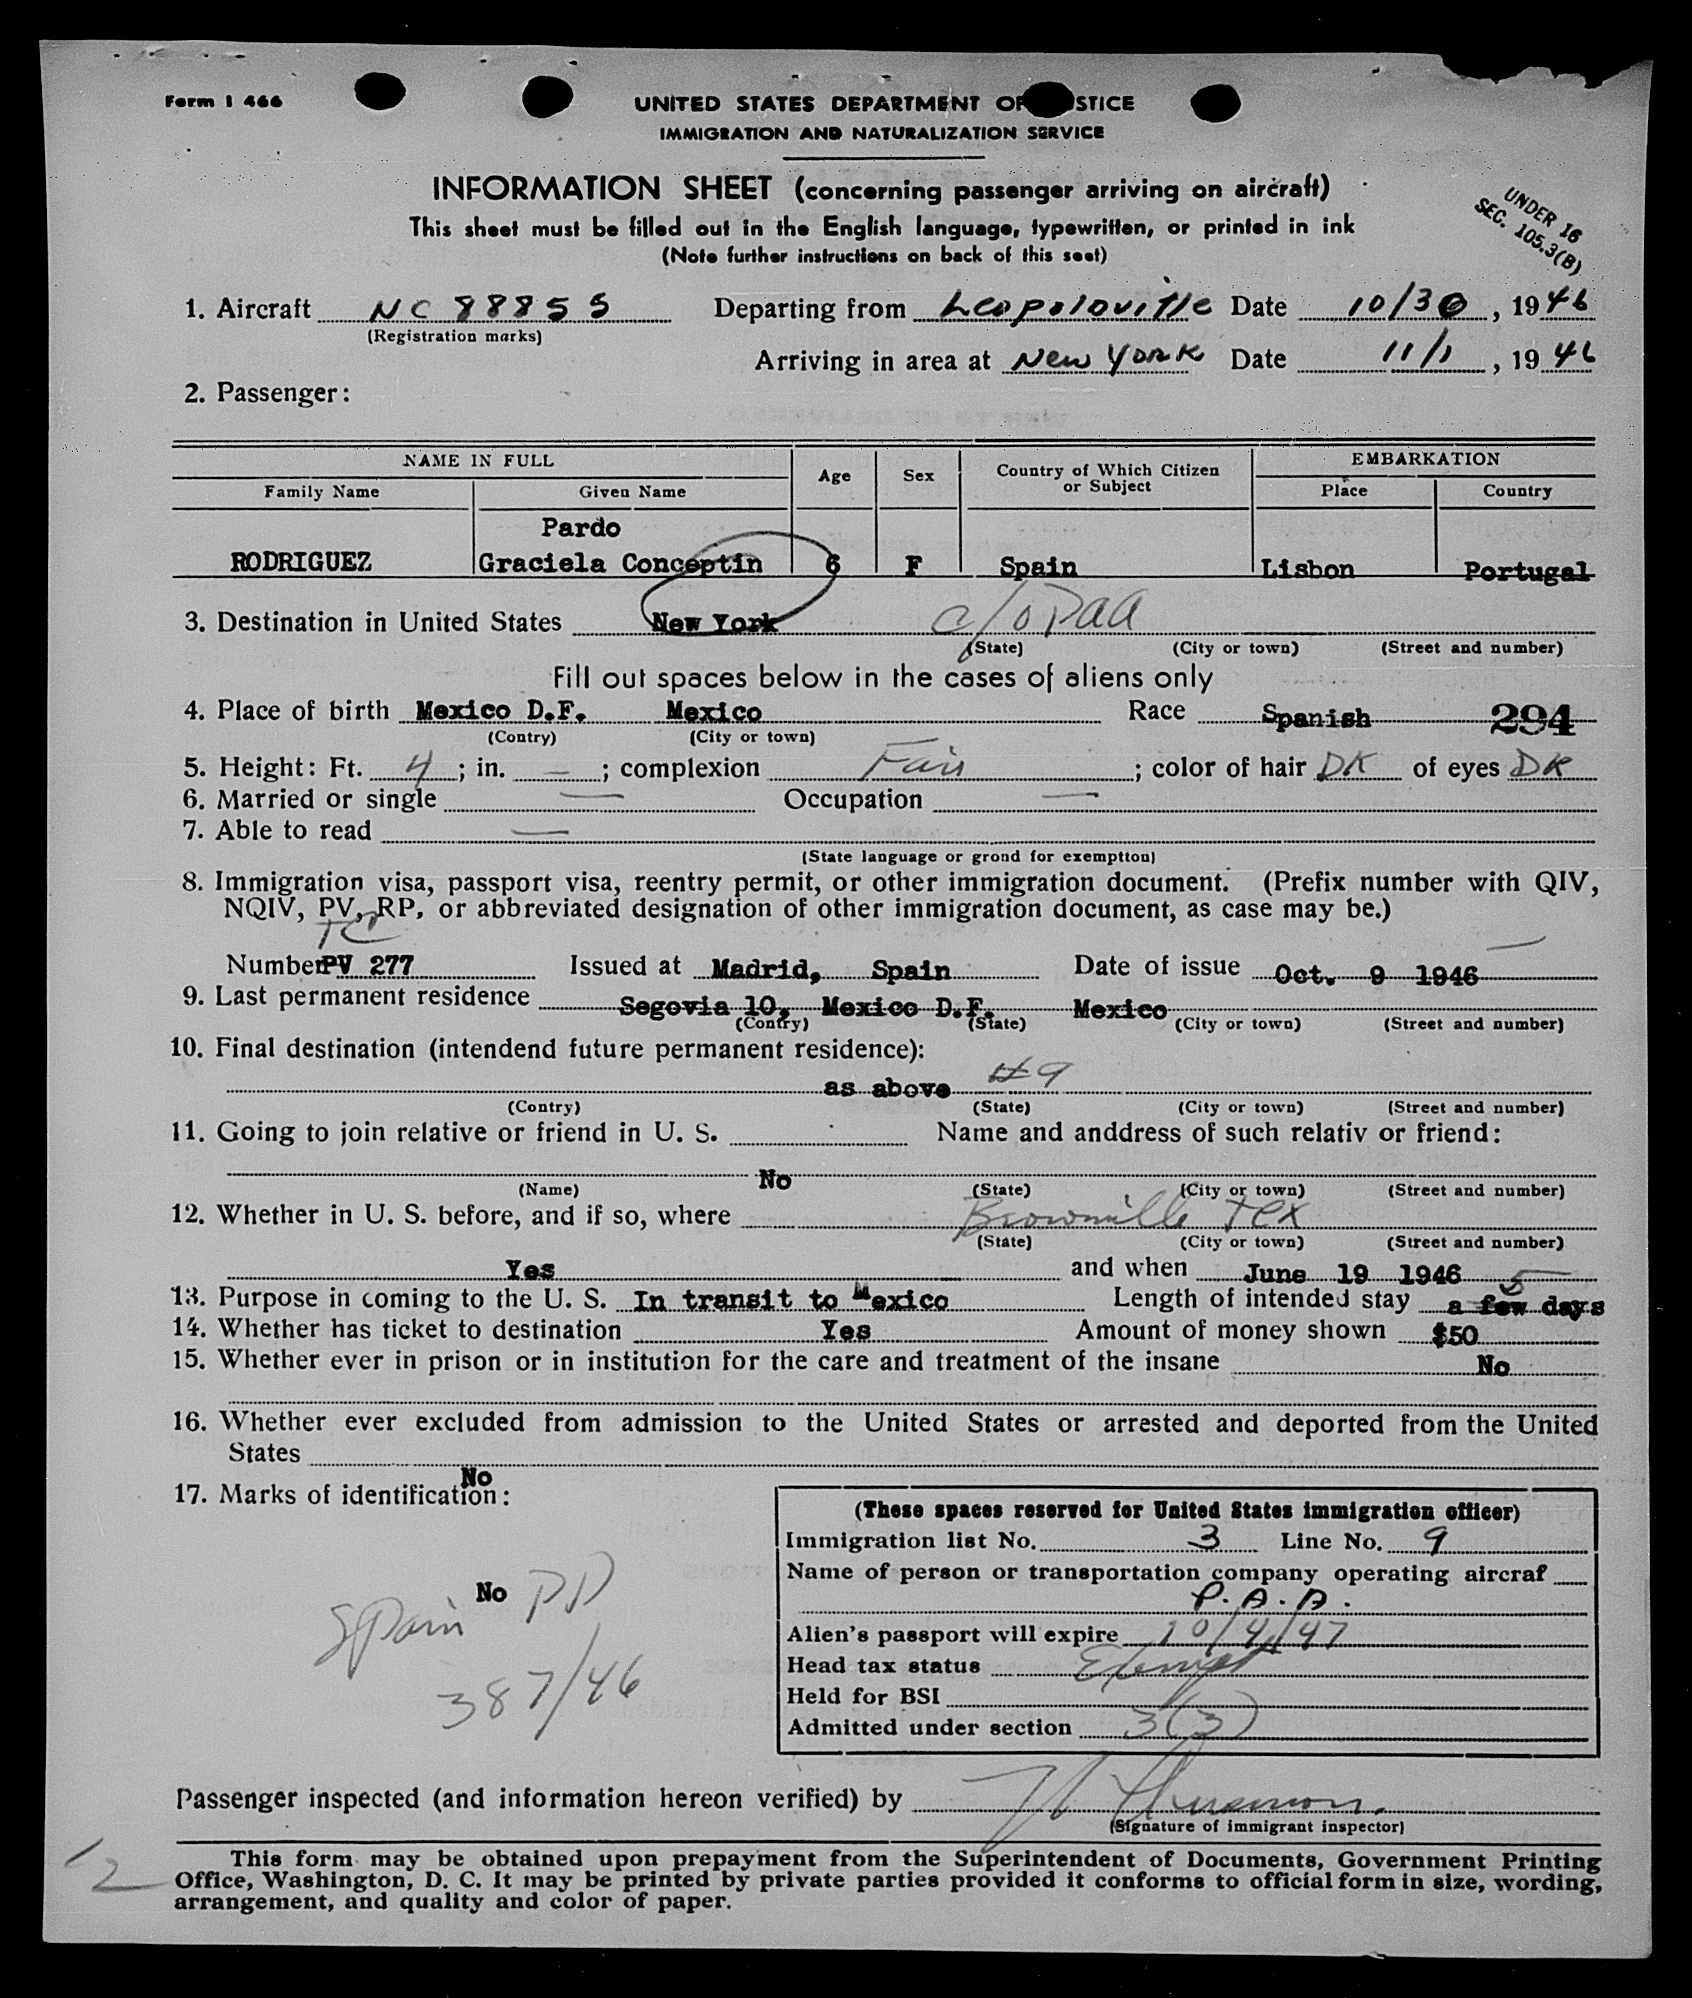 Form I 466
UNITED STATES DEPARTMENT OF JUSTICE
IMMIGRATION AND NATURALIZATION SERVICE
INFORMATION SHEET (concerning passenger arriving on aircraft)
This sheet must be filled out in the English language, typewritten, or printed in ink
(Note further instructions on back of this seet)
UNDER 16
SEC. 105.3(B)
1. Aircraft NC 88855 Departing from Leopoloville Date 10/30, 1946
(Registration marks)
Arriving in area at New York Date 11/1, 1946
2. Passenger:
NAME IN FULL Age Sex Country of Which Citizen or Subject EMBARKATION
Family Name Given Name Place Country
Pardo
RODRIGUEZ Graciela Conceptin 6 F Spain Lisbon Portugal
3. Destination in United States New York c/o Paa
(State) (City or town) (Street and number)
Fill out spaces below in the cases of aliens only
4. Place of birth Mexico D.F. Mexico Race Spanish 294
(Contry) (City or town)
5. Height: Ft. 4; in. —; complexion Fair; color of hair DK of eyes DK
6. Married or single — Occupation —
7. Able to read —
(State language or grond for exemptton)
8. Immigration visa, passport visa, reentry permit, or other immigration document. (Prefix number with QIV,
NQIV, PV, RP, or abbreviated designation of other immigration document, as case may be.)
TC
Number PV 277 Issued at Madrid, Spain Date of issue Oct. 9 1946
9. Last permanent residence Segovia 10, Mexico D.F. Mexico
(Contry) (State) (City or town) (Street and number)
10. Final destination (intendend future permanent residence):
as above #9
(Contry) (State) (City or town) (Street and number)
11. Going to join relative or friend in U. S. Name and anddress of such relativ or friend:
No
(Name) (State) (City or town) (Street and number)
12. Whether in U. S. before, and if so, where Brownville Tex
(State) (City or town) (Street and number)
Yes and when June 19 1946 5
13. Purpose in coming to the U. S. In transit to Mexico Length of intended stay a few days
14. Whether has ticket to destination Yes Amount of money shown $50
15. Whether ever in prison or in institution for the care and treatment of the insane No
16. Whether ever excluded from admission to the United States or arrested and deported from the United
States
No
17. Marks of identification:
No
Spain PP
387/46
(These spaces reserved for United States immigration officer)
Immigration list No. 3 Line No. 9
Name of person or transportation company operating aircraf
P.A.A.
Alien's passport will expire 10/4/47
Head tax status Exempt
Held for BSI
Admitted under section 3(3)
Passenger inspected (and information hereon verified) by
(Signature of immigrant inspector)
This form may be obtained upon prepayment from the Superintendent of Documents, Government Printing
Office, Washington, D. C. It may be printed by private parties provided it conforms to official form in size, wording,
arrangement, and quality and color of paper.